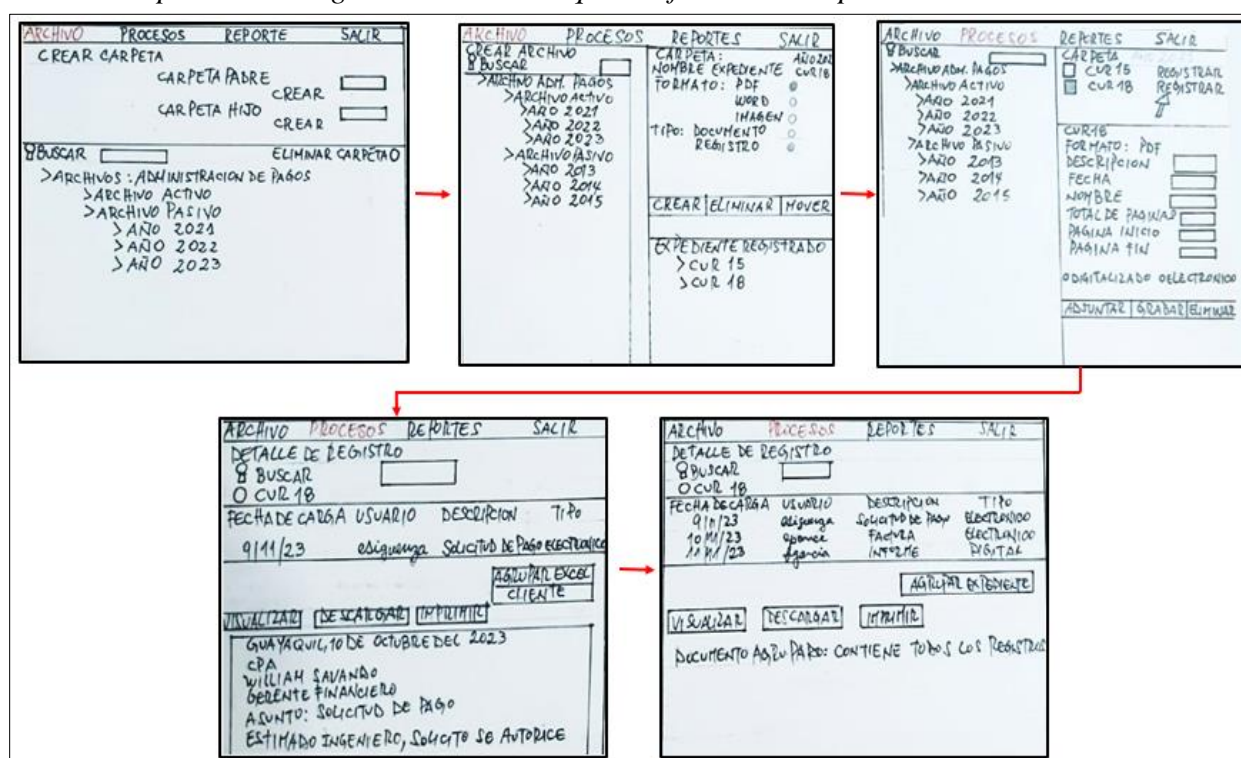 ARCHIVO PROCESOS REPORTE SALIR
CREAR CARPETA
CARPETA PADRE
CREAR
CARPETA HIJO
CREAR
BUSCAR ELIMINAR CARPETA
>ARCHIVOS: ADMINISTRACION DE PAGOS
>ARCHIVO ACTIVO
>ARCHIVO PASIVO
>AÑO 2021
>AÑO 2022
>AÑO 2023
ARCHIVO PROCESOS REPORTES SALIR
CREAR ARCHIVO
BUSCAR
>ARCHIVO ADM. PAGOS
>ARCHIVO ACTIVO
>AÑO 2021
>AÑO 2022
>AÑO 2023
>ARCHIVO PASIVO
>AÑO 2013
>AÑO 2014
>AÑO 2015
CARPETA: AÑO 202
NOMBRE EXPEDIENTE CUR18
FORMATO: PDF
WORD
IMAGEN
TIPO: DOCUMENTO
REGISTRO
CREAR ELIMINAR MOVER
EXPEDIENTE REGISTRADO
>CUR 15
>CUR 18
ARCHIVO PROCESOS REPORTES SALIR
BUSCAR
>ARCHIVO ADM. PAGOS
>ARCHIVO ACTIVO
>AÑO 2021
>AÑO 2022
>AÑO 2023
>ARCHIVO PASIVO
>AÑO 2013
>AÑO 2014
>AÑO 2015
CARPETA
CUR15 REGISTRAR
CUR18 REGISTRAR
CUR18
FORMATO: PDF
DESCRIPCION
FECHA
NOMBRE
TOTAL DE PAGINAS
PAGINA INICIO
PAGINA FIN
DIGITALIZADO ELECTRONICO
ADJUNTAR GRABAR ELIMINAR
ARCHIVO PROCESOS REPORTES SALIR
DETALLE DE REGISTRO
BUSCAR
CUR 18
FECHA DE CARGA USUARIO DESCRIPCION TIPO
9/11/23 esiguenza SOLICITUD DE PAGO ELECTRONICO
AGRUPAR EXCEL
CLIENTE
VISUALIZAR DESCARGAR IMPRIMIR
GUAYAQUIL, 10 DE OCTUBRE DEL 2023
CPA
WILLIAM SAVANDO
GERENTE FINANCIERO
ASUNTO: SOLICITUD DE PAGO
ESTIMADO INGENIERO, SOLICITO SE AUTORICE
ARCHIVO PROCESOS REPORTES SALIR
DETALLE DE REGISTRO
BUSCAR
CUR 18
FECHA DE CARGA USUARIO DESCRIPCION TIPO
9/11/23 esiguenza SOLICITUD DE PAGO ELECTRONICO
10/11/23 eponce FACTURA ELECTRONICO
11/11/23 fgarcia INFORME DIGITAL
AGRUPAR EXPEDIENTE
VISUALIZAR DESCARGAR IMPRIMIR
DOCUMENTO AGRUPADO: CONTIENE TODOS LOS REGISTROS